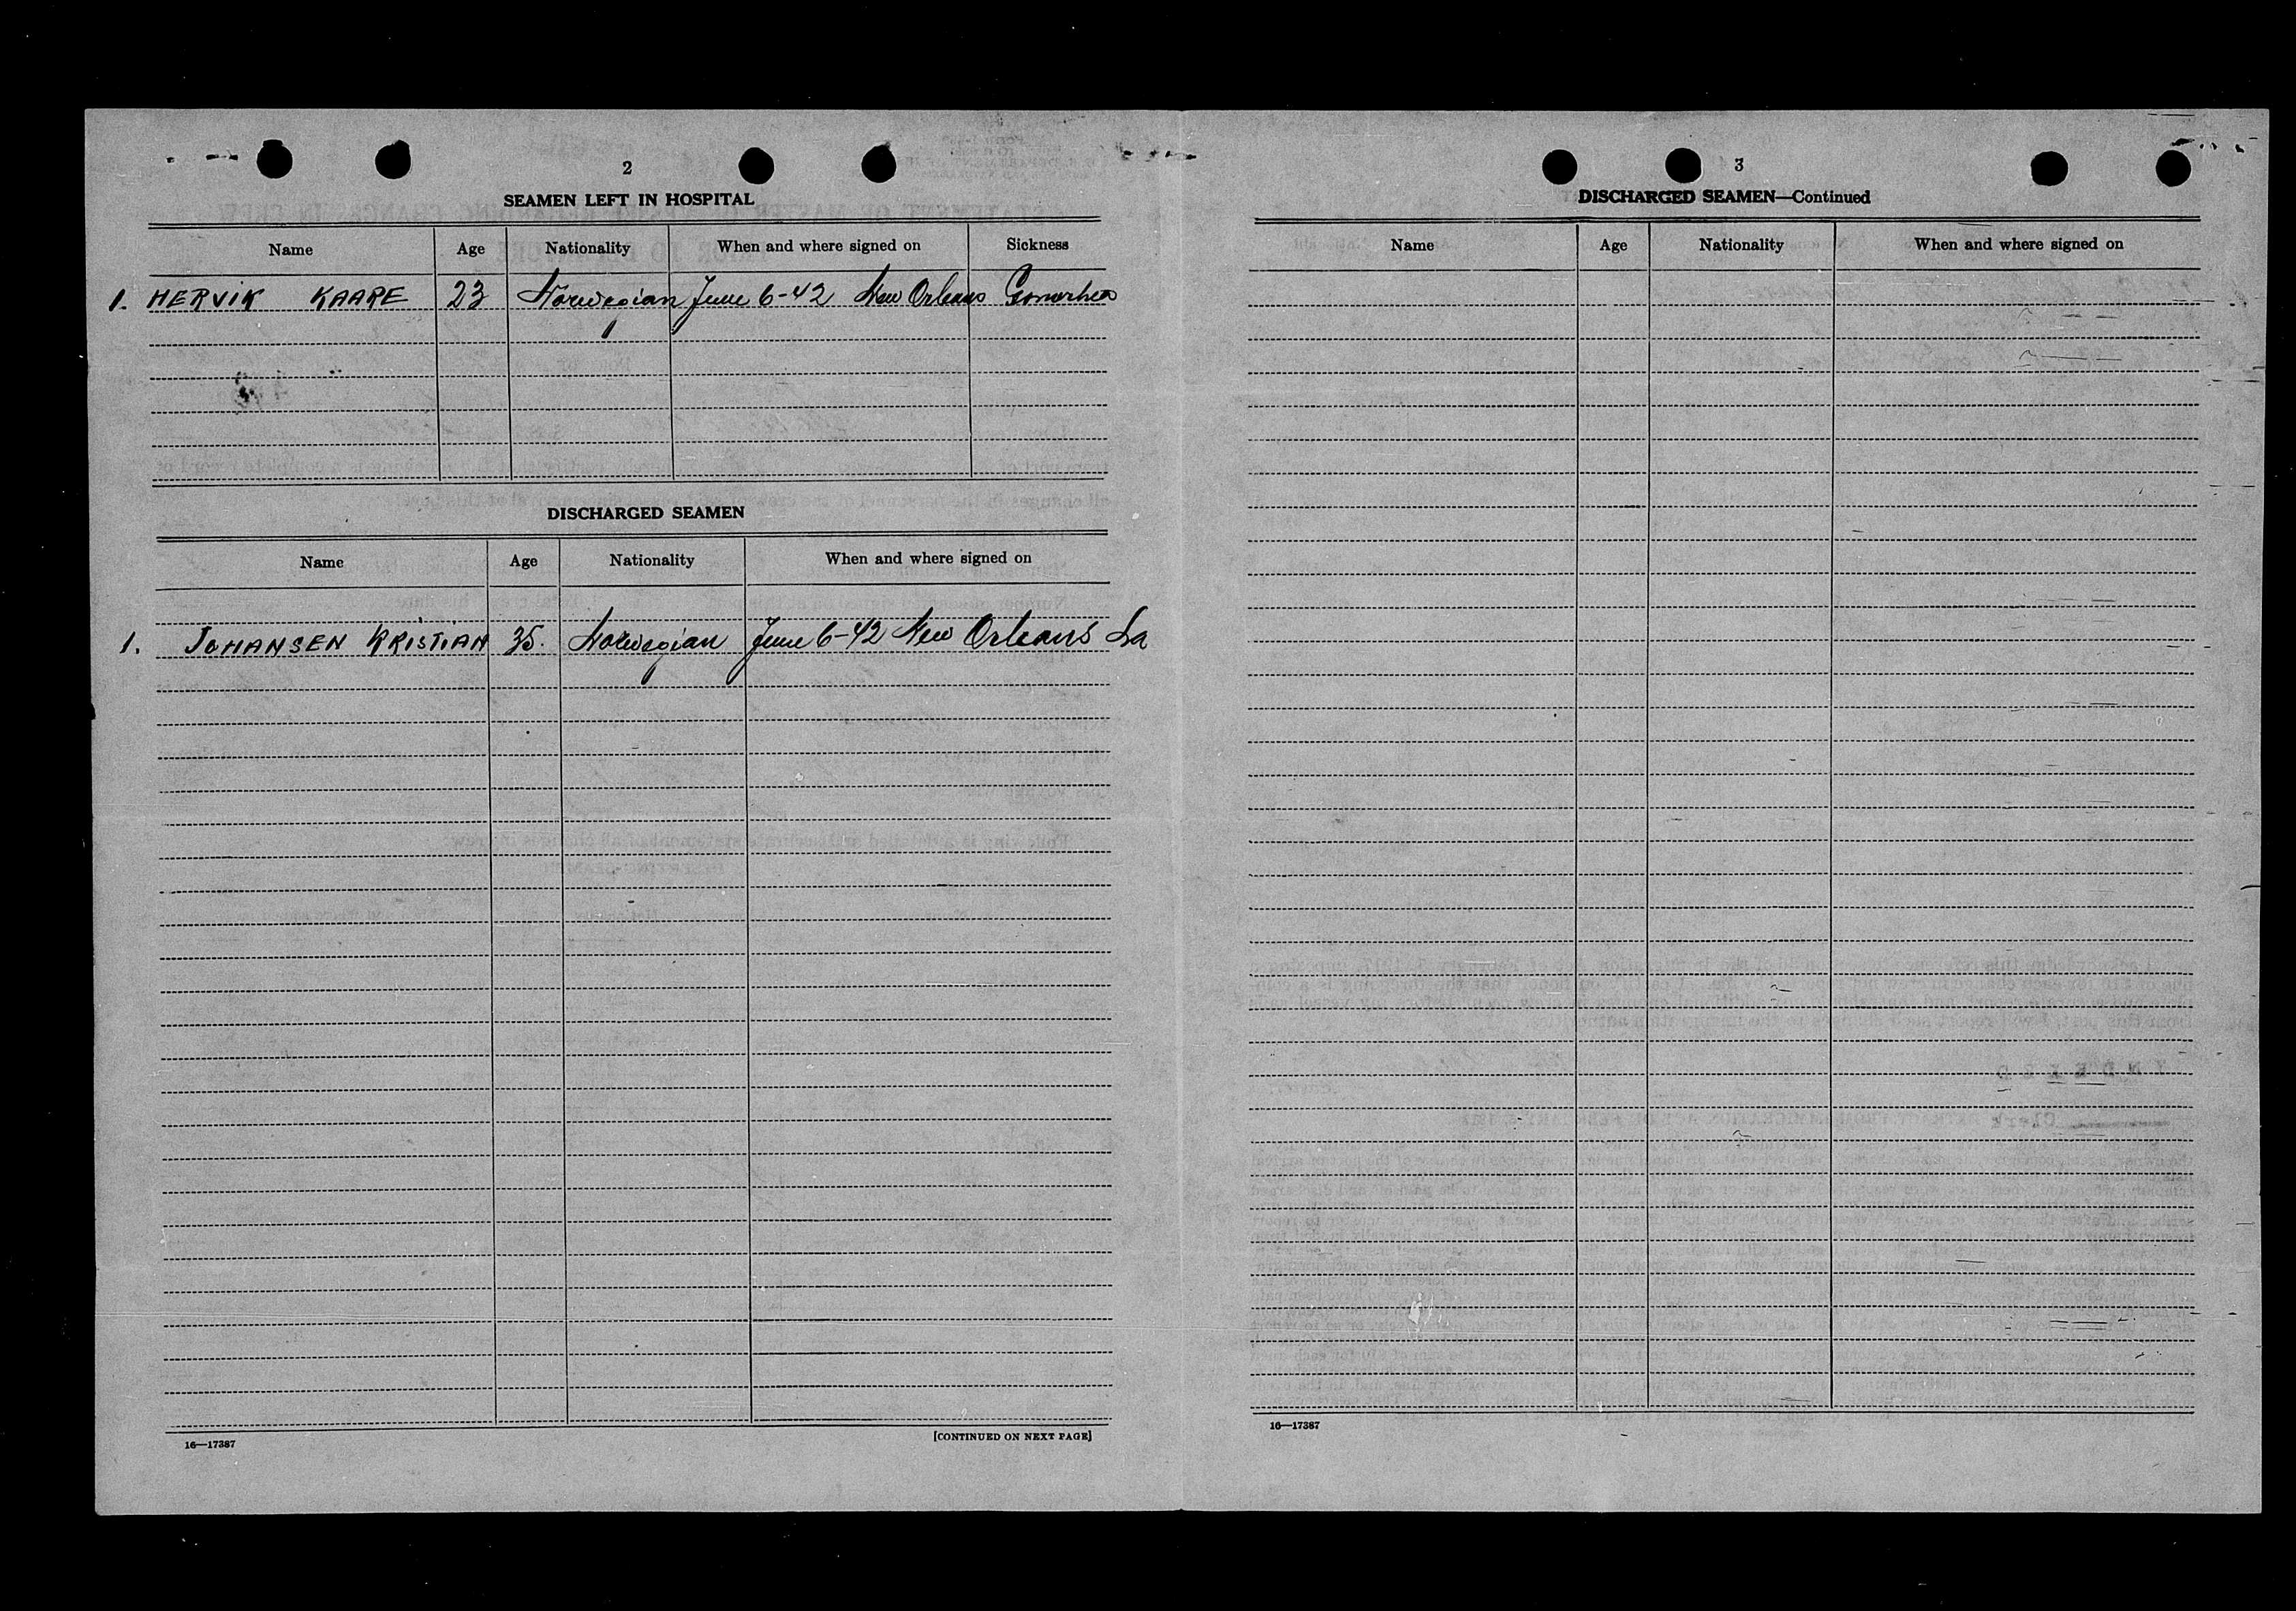 2
SEAMEN LEFT IN HOSPITAL
Name Age Nationality When and where signed on Sickness
1. HERVIK KAARE 23 Norwegian June 6-42 New Orleans Gonorhea
DISCHARGED SEAMEN
Name Age Nationality When and where signed on
1. JOHANSEN KRISTIAN 35. Norwegian June 6-42 New Orleans La
16—17387 [CONTINUED ON NEXT PAGE]
3
DISCHARGED SEAMEN—Continued
Name Age Nationality When and where signed on
16—17387